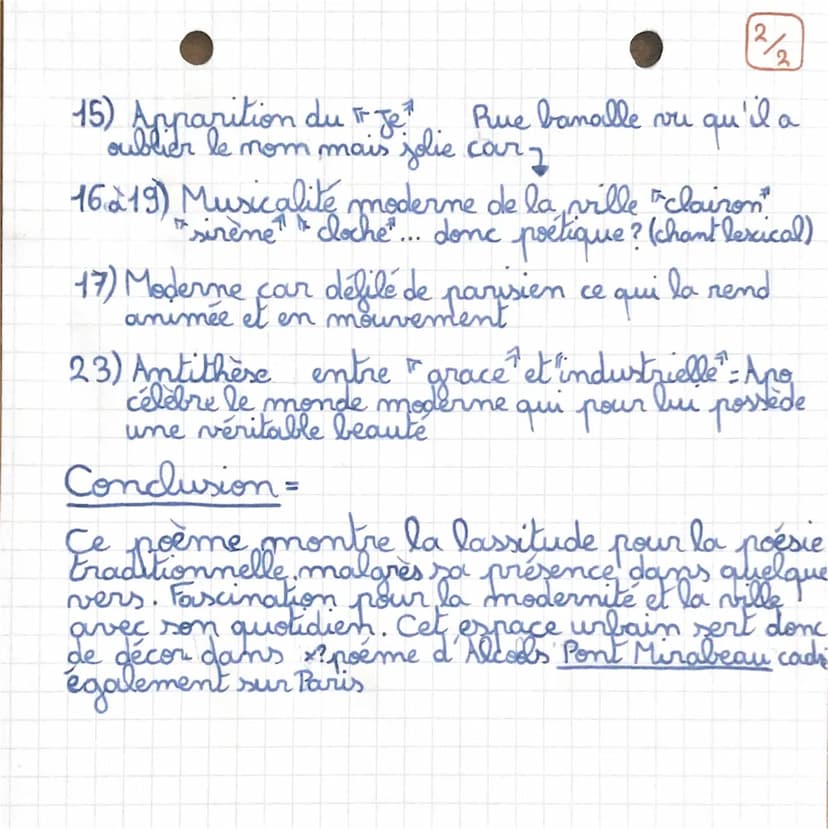 2/2
15) Apparition du "Je" Rue banalle vu qu'il a
oublier le nom mais jolie car
16à19) Musicalité moderne de la ville "clairon"
"sirène" "cloche"... donc poétique? (chant lexical)
17) Moderne car défilé de parisien ce qui la rend
animée et en mouvement
23) Antithèse entre "grace" et "industrielle" = Apo
célèbre le monde moderne qui pour lui possède
une véritable beauté
Conclusion =
Ce poème montre la lassitude pour la poésie
traditionnelle, malgrès sa présence dans quelque
vers. Fascination pour la modernité et la ville
avec son quotidien. Cet espace urbain sert donc
de décor dans x? poème d'Alcools Pont Mirabeau cadr
également sur Paris